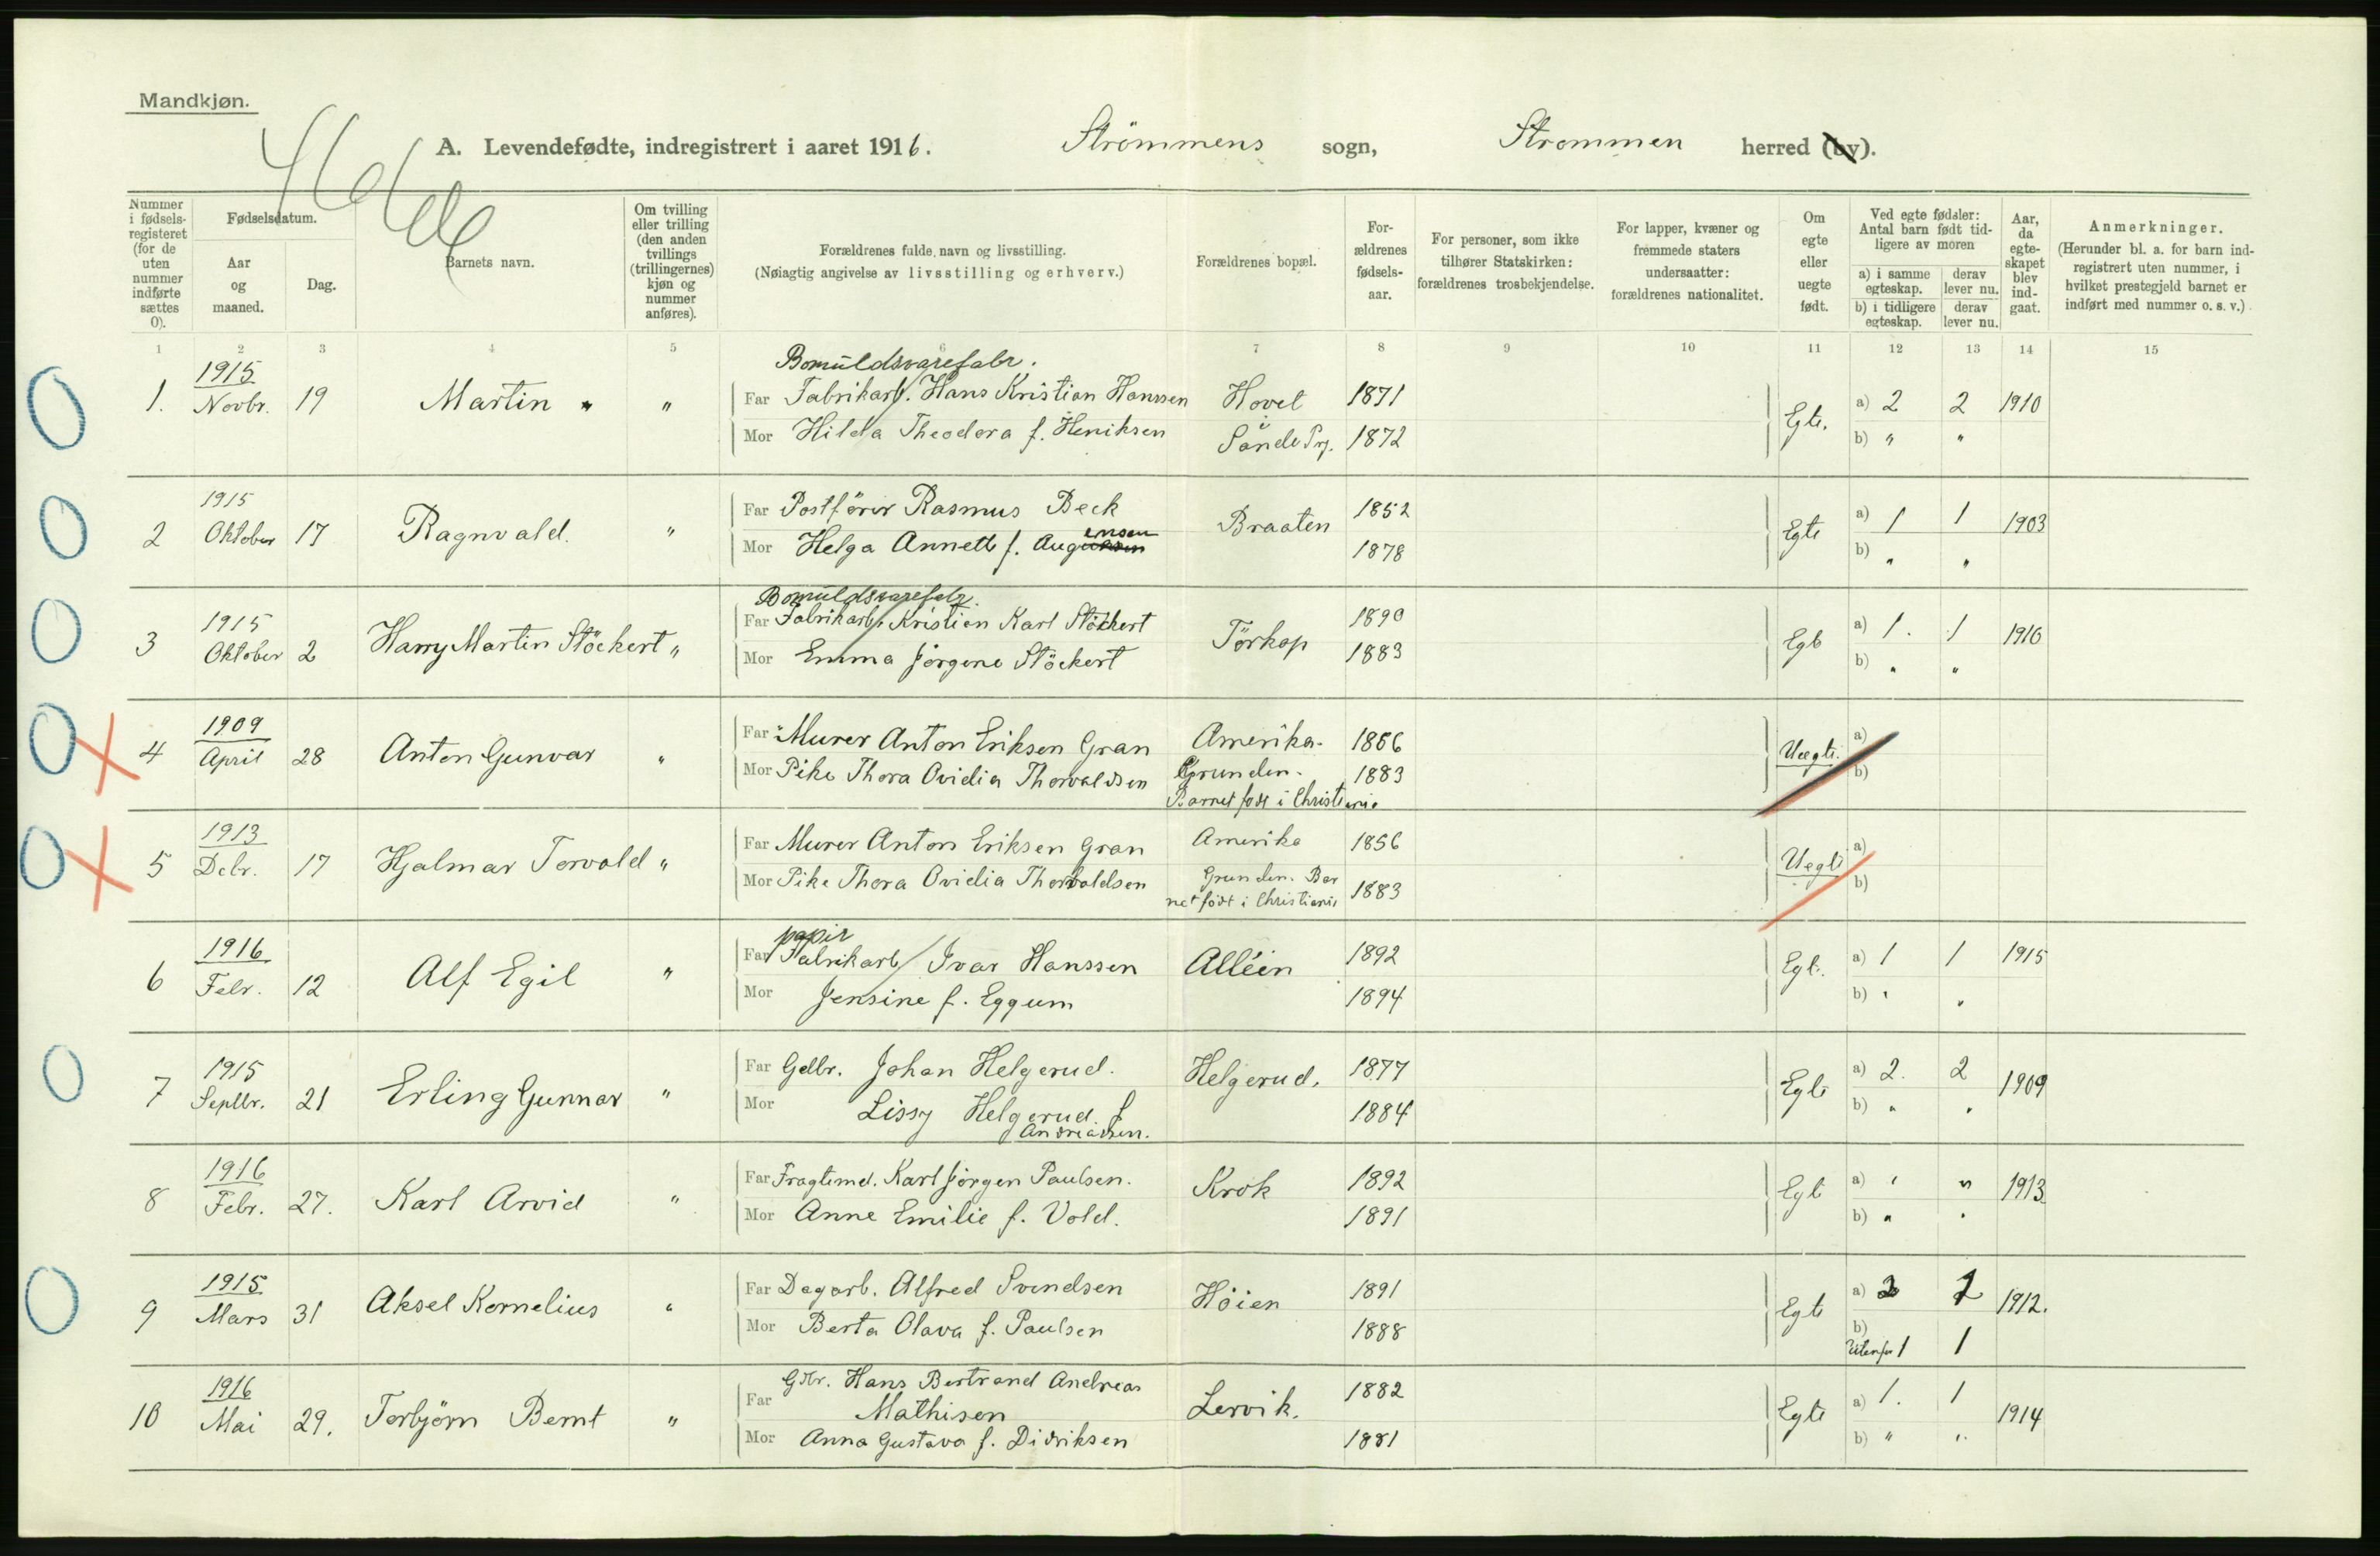 Mandkjøn.
A. Levendefødte, indregistrert i aaret 1916. Strömmens sogn, Strømmen herred (by).
Nummer i fødsels-registeret (for de uten nummer indførte sættes 0).
Fødselsdatum.
Aar og maaned.
Dag.
Barnets navn.
Om tvilling eller trilling (den anden tvillings (trillingernes) kjøn og nummer anføres).
Forældrenes fulde navn og livsstilling.
(Nøiagtig angivelse av livsstilling og erhverv.)
Forældrenes bopæl.
For-ældrenes fødsels-aar.
For personer, som ikke tilhører Statskirken: forældrenes trosbekjendelse.
For lapper, kvæner og fremmede staters undersaatter: forældrenes nationalitet.
Om egte eller uegte født.
Ved egte fødsler: Antal barn født tid-ligere av moren
a) i samme egteskap. derav lever nu.
b) i tidligere egteskap. derav lever nu.
Aar, da egte-skapet blev ind-gaat.
Anmerkninger.
(Herunder bl. a. for barn ind-registrert uten nummer, i hvilket prestegjeld barnet er indført med nummer o. s. v.)
1 2 3 4 5 6 7 8 9 10 11 12 13 14 15
1915 Bomuldsvarefabr.
1. Novbr. 19 Martin " " Far Fabrikarb. Hans Kristian Hanssen Hovet 1871 Egte. a) 2 2 1910
Mor Hilda Theodora f. Henriksen Sande Prg. 1872 b) " "
1915 Far Postförer Rasmus Beck 1852
2 Oktober 17 Ragnvald. " Braaten Egte a) 1 1 1903
Mor Helga Annett f. Augensen 1878 b) " "
Bomuldsvarefabr.
1915 Far Fabrikarb. Kristian Karl Stöckert 1890
3 Oktober 2 Harry Martin Stöckert " Törkop Egte a) 1. 1 1910
Mor Emma Jørgene Stöckert 1883 b) " "
1909 Far Murer Anton Eriksen Gran Amerika. 1856
4 April 28 Anton Gunvar " Uegte. a)
Mor Pike Thora Ovidia Thorvaldsen Grunden. 1883 b)
Barnet født i Christiania
1913 Far Murer Anton Eriksen Gran Amerika 1856
5 Debr. 17 Hjalmar Torvald " Uegte a)
Mor Pike Thora Ovidia Thorvaldsen Grunden. Bar 1883 b)
net født i Christiania
papir
1916 Far Fabrikarb Ivar Hanssen Alléen 1892 a) 1 1 1915
6 Febr. 12 Alf Egil " Egte.
Mor Jensine f. Eggum 1894 b) " "
1915 Far Gdbr. Johan Helgerud. Helgerud. 1877 a) 2. 2 1909
7 Septbr. 21 Erling Gunnar " Egte
Mor Lissy Helgerud f 1884 b) " "
Andreassen.
1916 Far Fragtmd. Karl Jörgen Paulsen. Krok 1892 a) " " 1913
8 Febr. 27. Karl Arvid " Egte
Mor Anne Emilie f. Vold. 1891 b) " "
1915 Far Dagarb. Alfred Svendsen 1891 a) 2
9 Mars 31 Aksel Kornelius " Höien Egte 1912.
Mor Berta Olava f. Paulsen 1888 b)
Utenfor 1 1
1916 Gdbr. Hans Bertrand Andreas 1882
10 Mai 29. Torbjörn Bernt " Far Mathisen Lervik. Egte a) 1. 1 1914
Mor Anna Gustava f. Didriksen 1881 b) " "